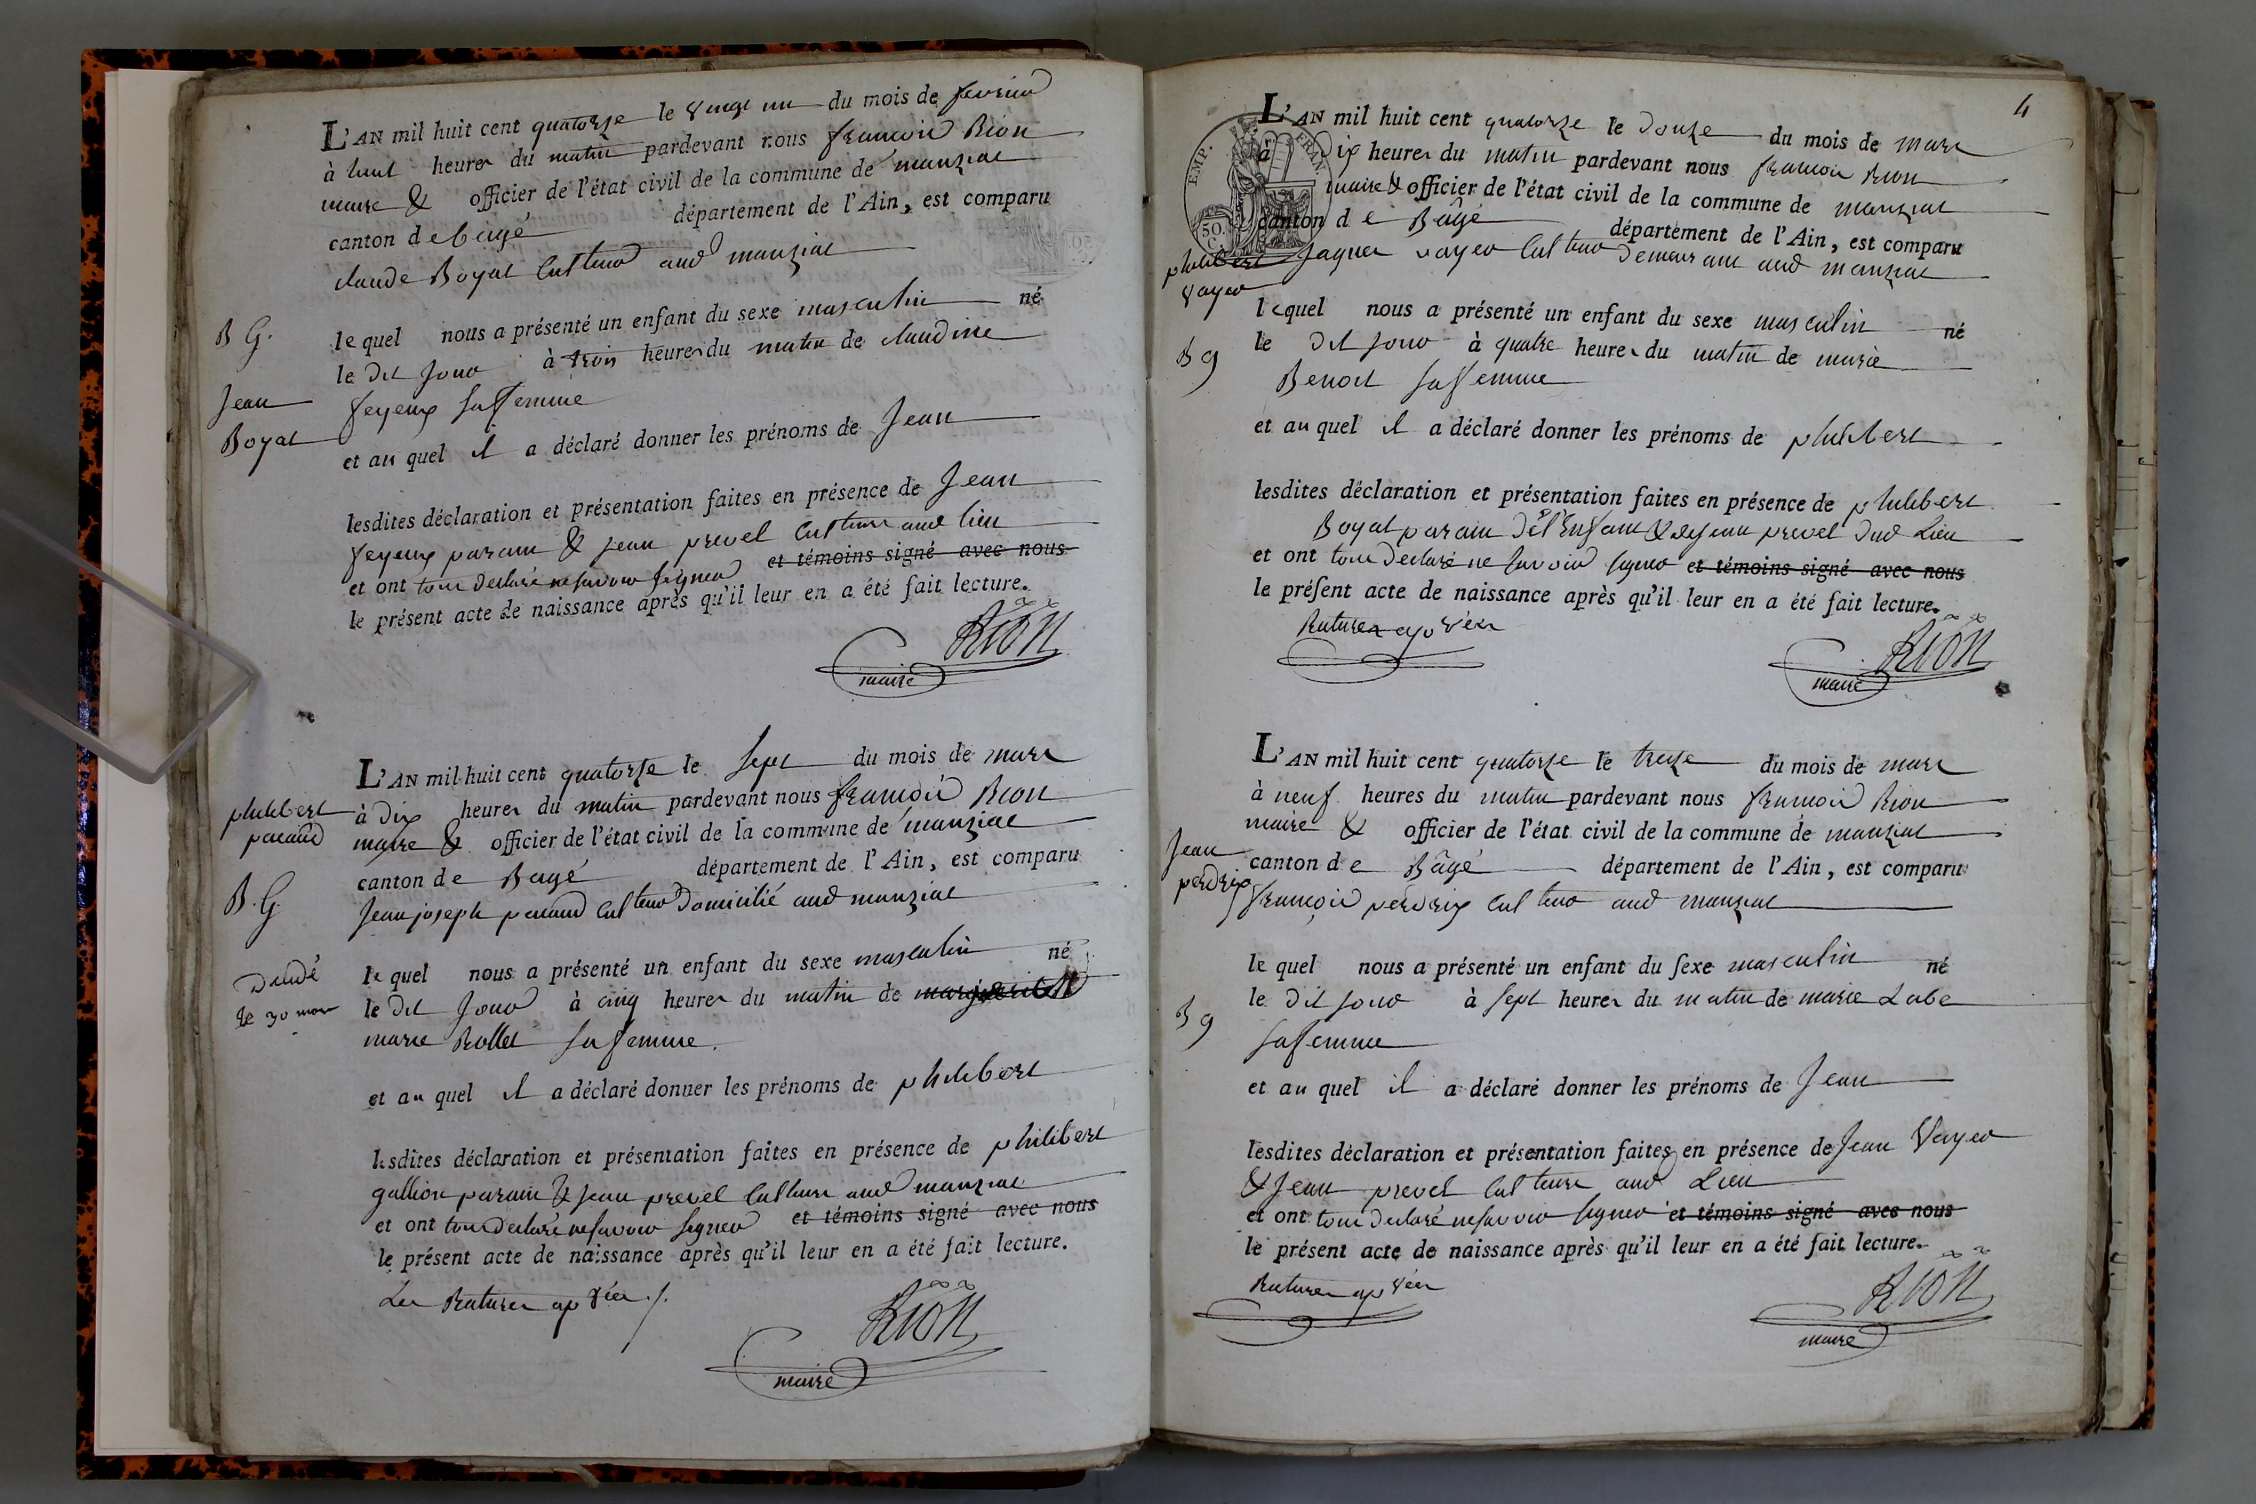 L'AN mil huit cent quatorze le vingt un du mois de fevrier
à huit heures du matin pardevant nous françois Rion
maire & officier de l'état civil de la commune de manziat
canton de bagé département de l'Ain, est comparu
claude Boyat Cultivr aud manziat
B G.
le quel nous a présenté un enfant du sexe masculin né
le dit Jour à trois heures du matin de claudine
Jean
feyeux sa femme
Boyat
et au quel il a déclaré donner les prénoms de Jean
lesdites déclaration et présentation faites en présence de Jean
feyeux parain & jean prevel Cultivrs aud lieu
et ont tous déclaré ne savoir signer et témoins signé avec nous
le présent acte de naissance après qu'il leur en a été fait lecture.
Rion
maire
L'AN mil huit cent quatorze le sept du mois de mars
philibert
pacaud
à dix heures du matin pardevant nous françois Rion
maire & officier de l'état civil de la commune de manziat
canton de Bagé département de l'Ain, est comparu
B. G.
Jean joseph pacaud Cultivr Domicilié aud manziat
le quel nous a présenté un enfant du sexe masculin né
le 30 mars
le dit Jour à cinq heures du matin de marguerite
marie Rollet sa femme.
et au quel il a déclaré donner les prénoms de philibert
lesdites déclaration et présentation faites en présence de philibert
gallion parain & Jean prevel Cultivrs aud manziat
et ont tous déclaré ne savoir signer et témoins signé avec nous
le présent acte de naissance après qu'il leur en a été fait lecture.
Les Ratures apvées ./.
Rion
maire
4
EMP. FRAN.
50. C.
L'AN mil huit cent quatorze le Douze du mois de mars
à Dix heures du matin pardevant nous françois Rion
maire & officier de l'état civil de la commune de manziat
canton de Bâgé département de l'Ain, est comparu
philibert
vayer
Jaques vayer Cultivr Demeurant aud manziat
lequel nous a présenté un enfant du sexe masculin né
B g
le dit jour à quatre heures du matin de marie
Benoit sa femme
et au quel il a déclaré donner les prénoms de philibert
lesdites déclaration et présentation faites en présence de philibert
Boyat parain de l'Enfant & de jean prevel dud Lieu
et ont tous déclaré ne savoir signer et témoins signé avec nous
le présent acte de naissance après qu'il leur en a été fait lecture.
Ratures apvées
Rion
maire
L'AN mil huit cent quatorze le treize du mois de mars
à neuf heures du matin pardevant nous françois Rion
maire & officier de l'état civil de la commune de manziat
Jean
perdrix
canton de Bâgé département de l'Ain, est comparu
françois perdrix Cultivr aud manziat
le quel nous a présenté un enfant du sexe masculin né
B g
le dit jour à sept heures du matin de marie Labe
sa femme
et au quel il a déclaré donner les prénoms de Jean
lesdites déclaration et présentation faites en présence de Jean Vayer
& Jean prevel Cultivrs aud Lieu
et ont tous déclaré ne savoir signer et témoins signé avec nous
le présent acte de naissance après qu'il leur en a été fait lecture.
Ratures apvées
Rion
maire